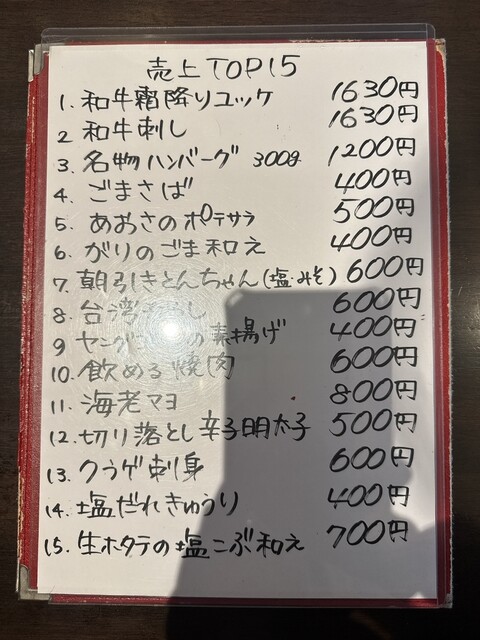 売上TOP15
1. 和牛霜降りユッケ 1630円
2 和牛刺し 1630円
3. 名物ハンバーグ 300g 1200円
4. ごまさば 400円
5. あおさのポテサラ 500円
6. がりのごま和え 400円
7. 朝引きとんちゃん(塩・みそ) 600円
8. 台湾 し 600円
9 ヤング の素揚げ 400円
10. 飲める焼肉 600円
11. 海老マヨ 800円
12. 切り落とし辛子明太子 500円
13. クラゲ刺身 600円
14. 塩だれきゅうり 400円
15. 生ホタテの塩こぶ和え 700円